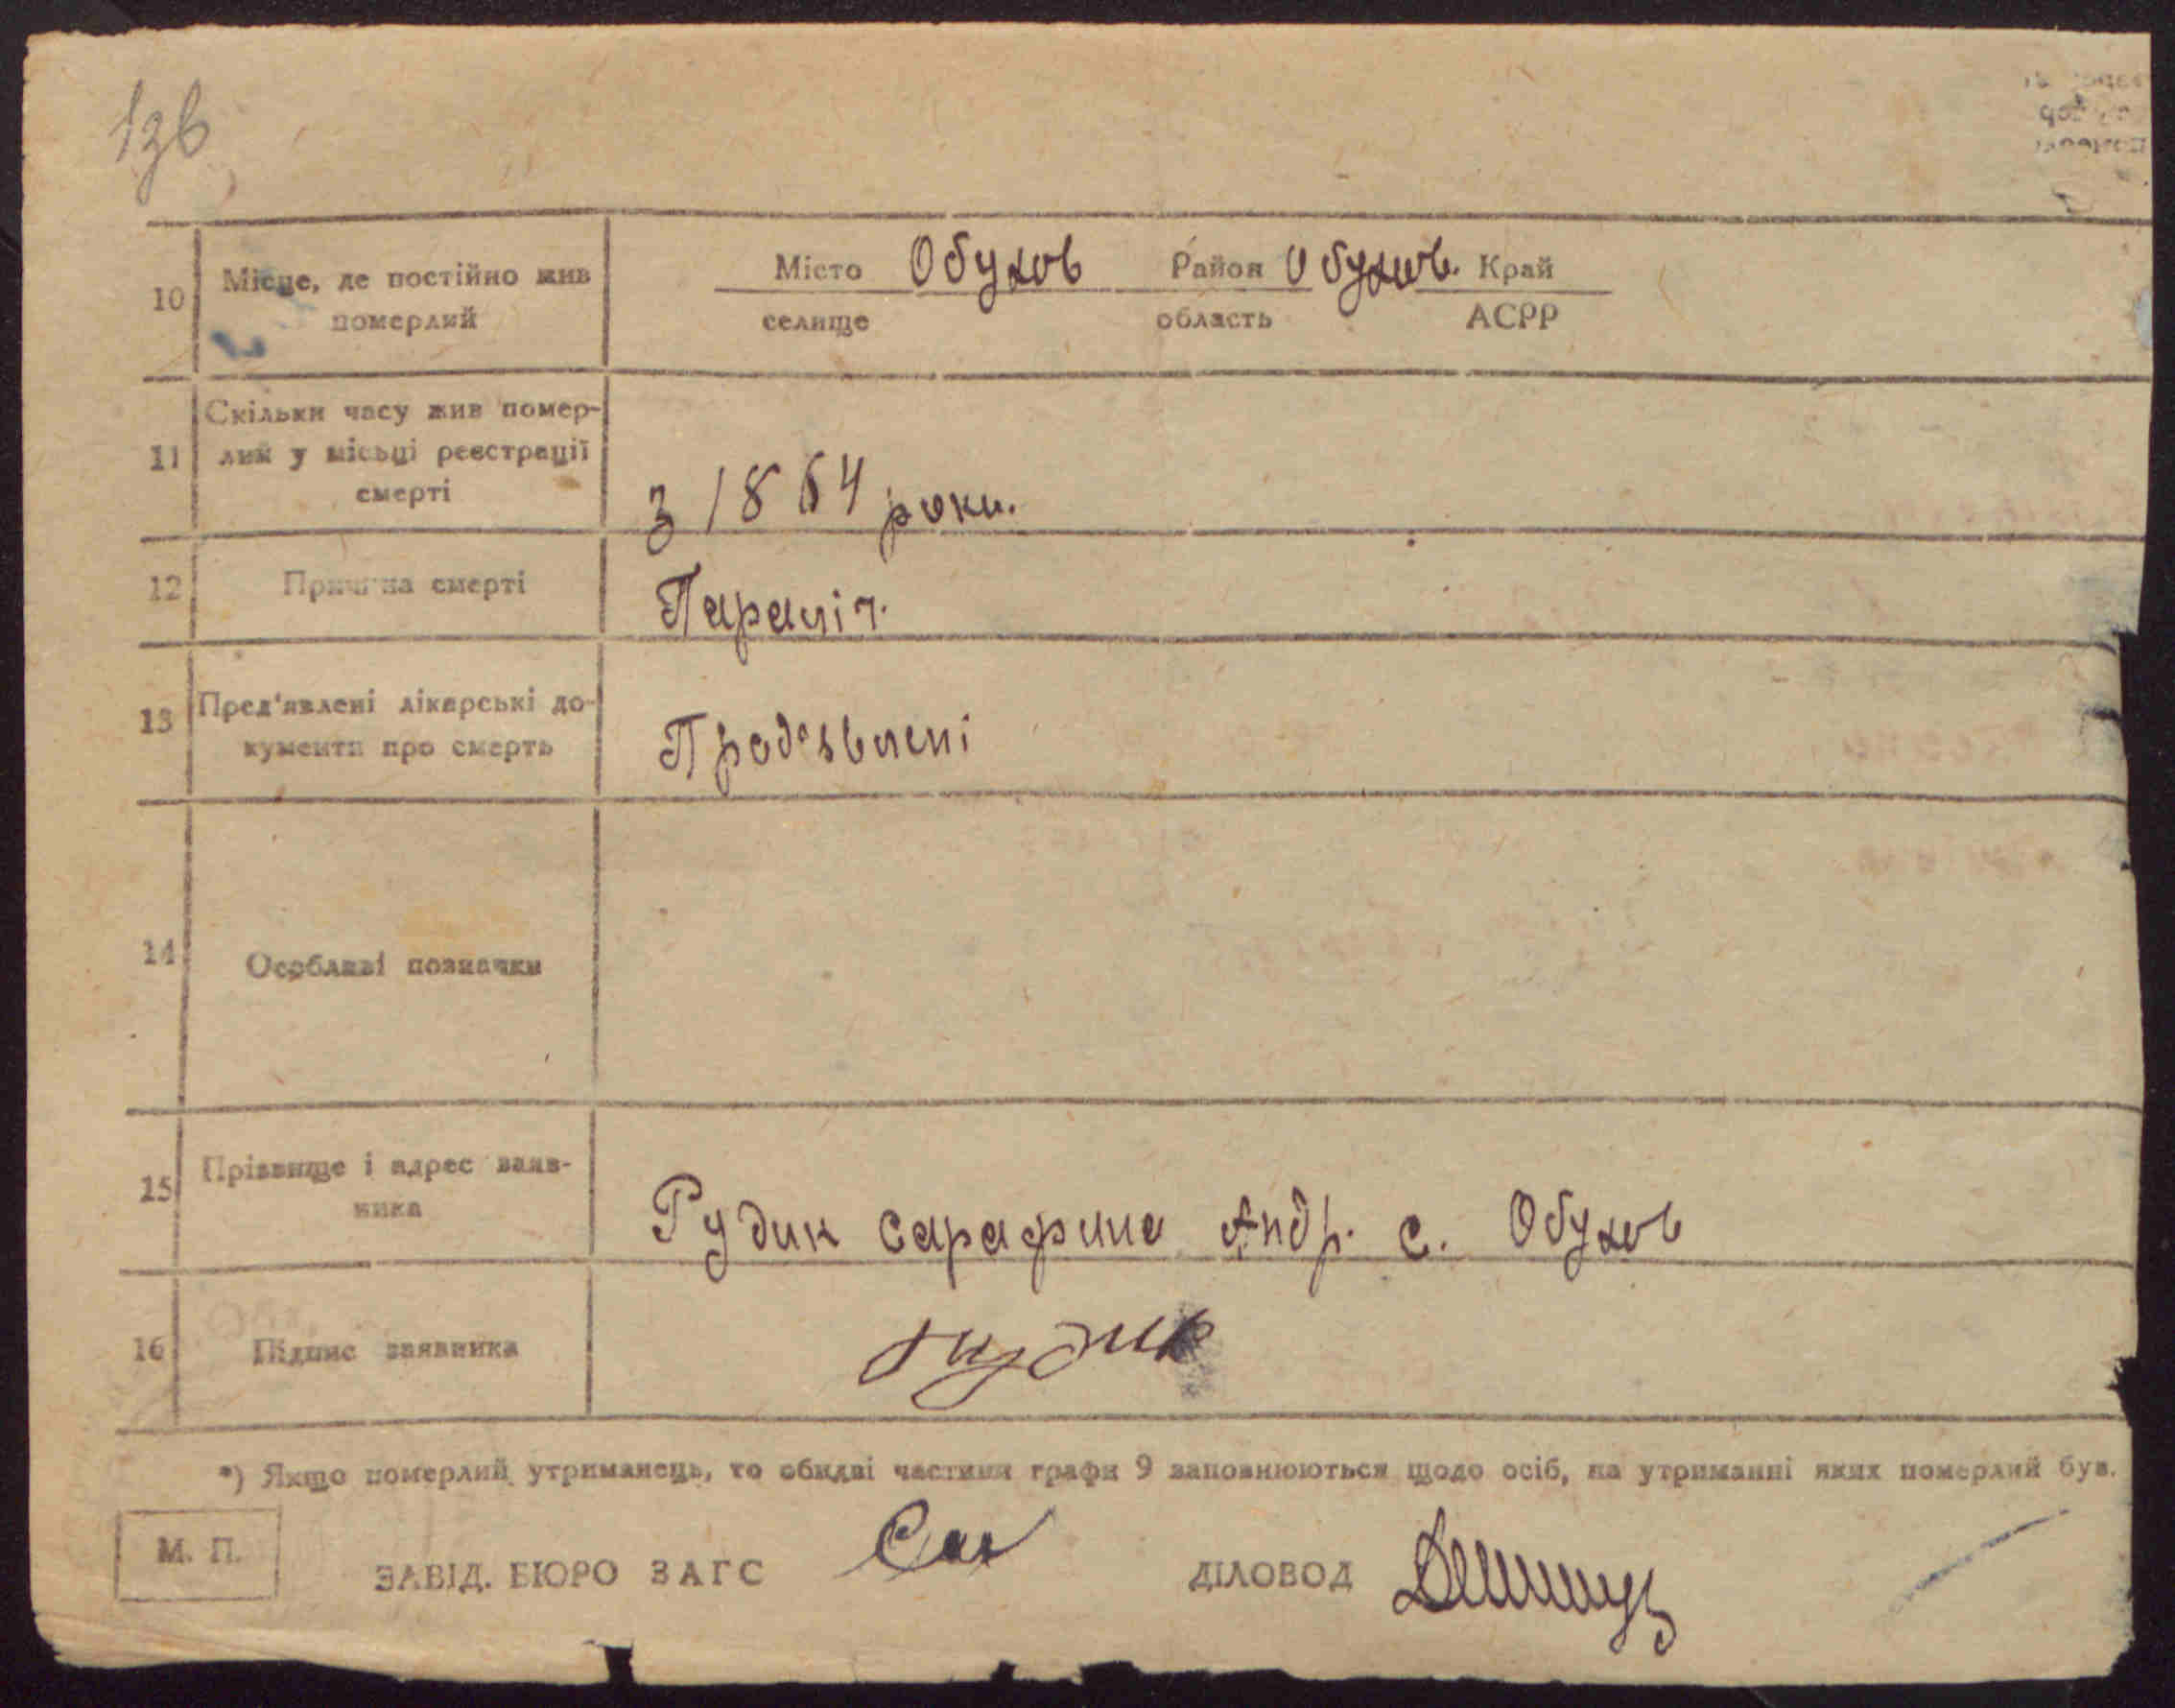 136
10 Місце, де постійно жив Місто Обухов Район Обухов. Край
померлий селище область АСРР
Скільки часу жив помер-
11 лий у місьці реєстрації
смерті з 1864 роки.
12 Причина смерті Параліч.
13 Пред'явлені лікарські до-
кументи про смерть Prод'явлені
14 Особливі позначки
15 Прізвище і адрес заяв-
ника Рудик Сарафина Андр. с. Обухов
16 Підпис заявника Рудик
*) Якщо померлий утриманець, то обидві частини графи 9 заповнюються щодо осіб, на утриманні яких померлий був.
М. П. ЗАВІД. БЮРО ЗАГС ДІЛОВОД